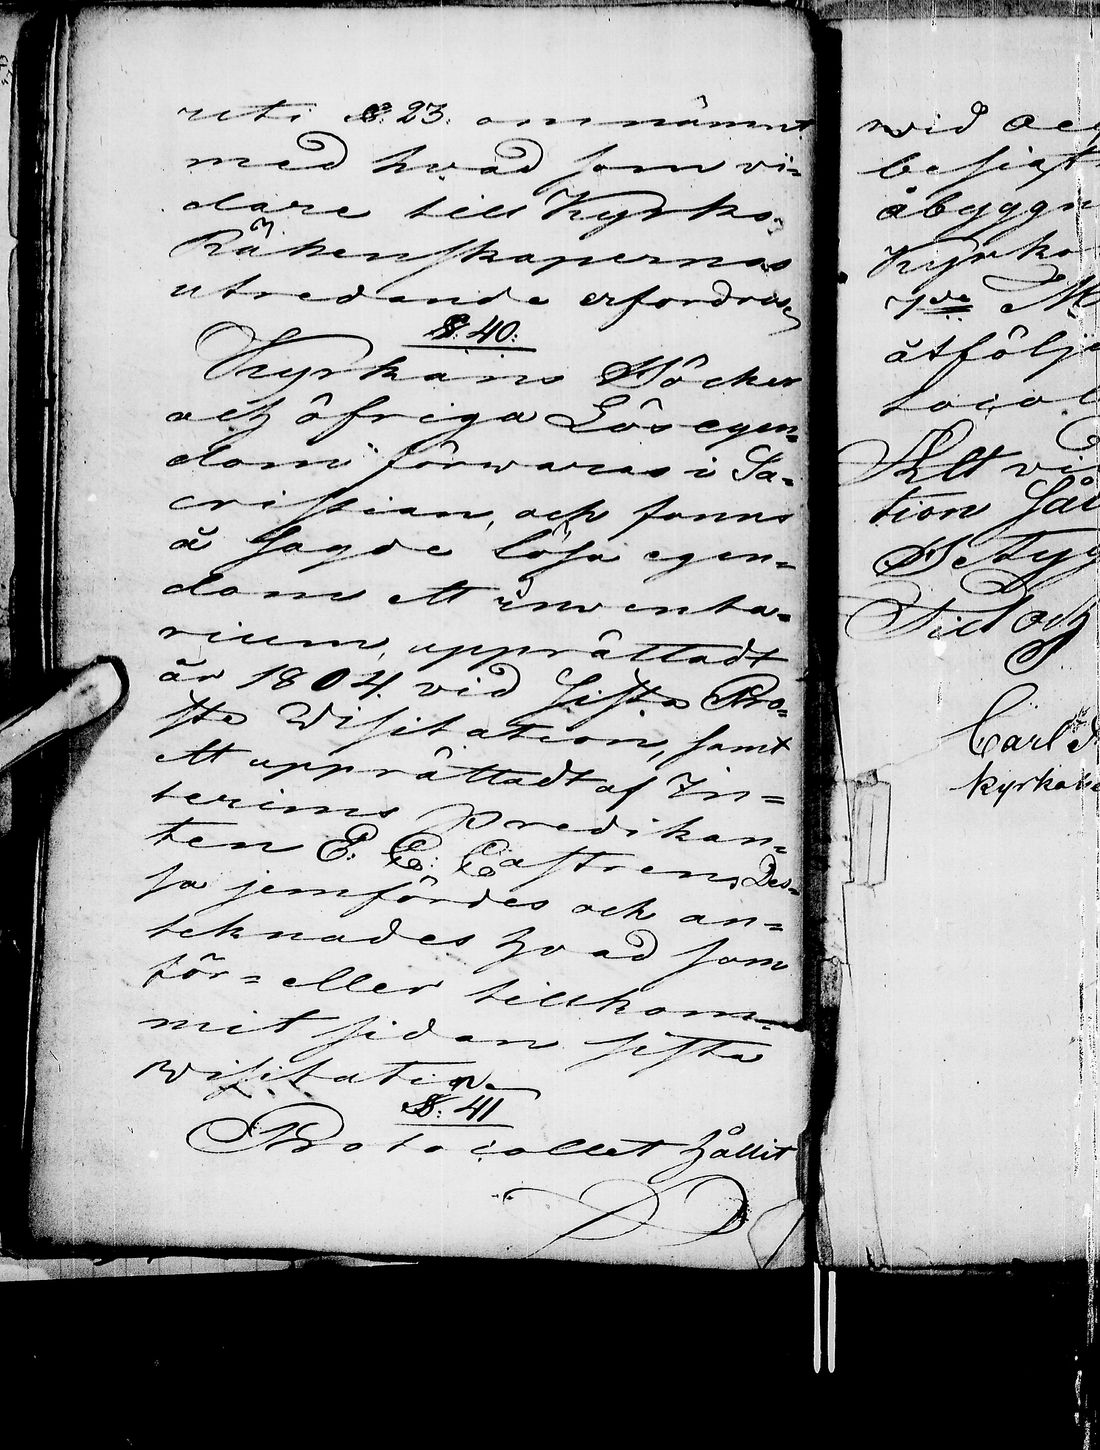 reti §: 23: omnämnt
med hvad som vi-
dare till Kyrko-
Räkenskapernas
utredande erfordras,
§: 40:
Kyrkans Böcker
och öfriga Lösegen-
dom förwaras i Sa-
cristian, och fanns
å sagde lösa egen-
dom ett inwenta-
rium, upprättadt
år 1804. vid sista Pro-
sste Wisitation, samt
ett upprättadt af In-
terims predikan-
ten E: C: Castren, Des-
sa jemfördes och an-
teknades hvad som
för- eller tillkom-
mit sidan sista
wisitation
§: 41
Protocollet hållit
wid
besigt
åbyggn
Kyrko
7de
åtfölje
tocol
Allt vi
tion
Betyg
Tid och
Carl
Kyrkohe